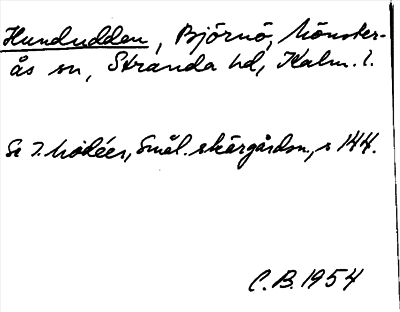 Hundudden, Björnö, Mönster-
ås sn, Stranda hd, Kalm. l.
Se I. Modéer, Smål. skärgårdsn, s 144.
C.B. 1954